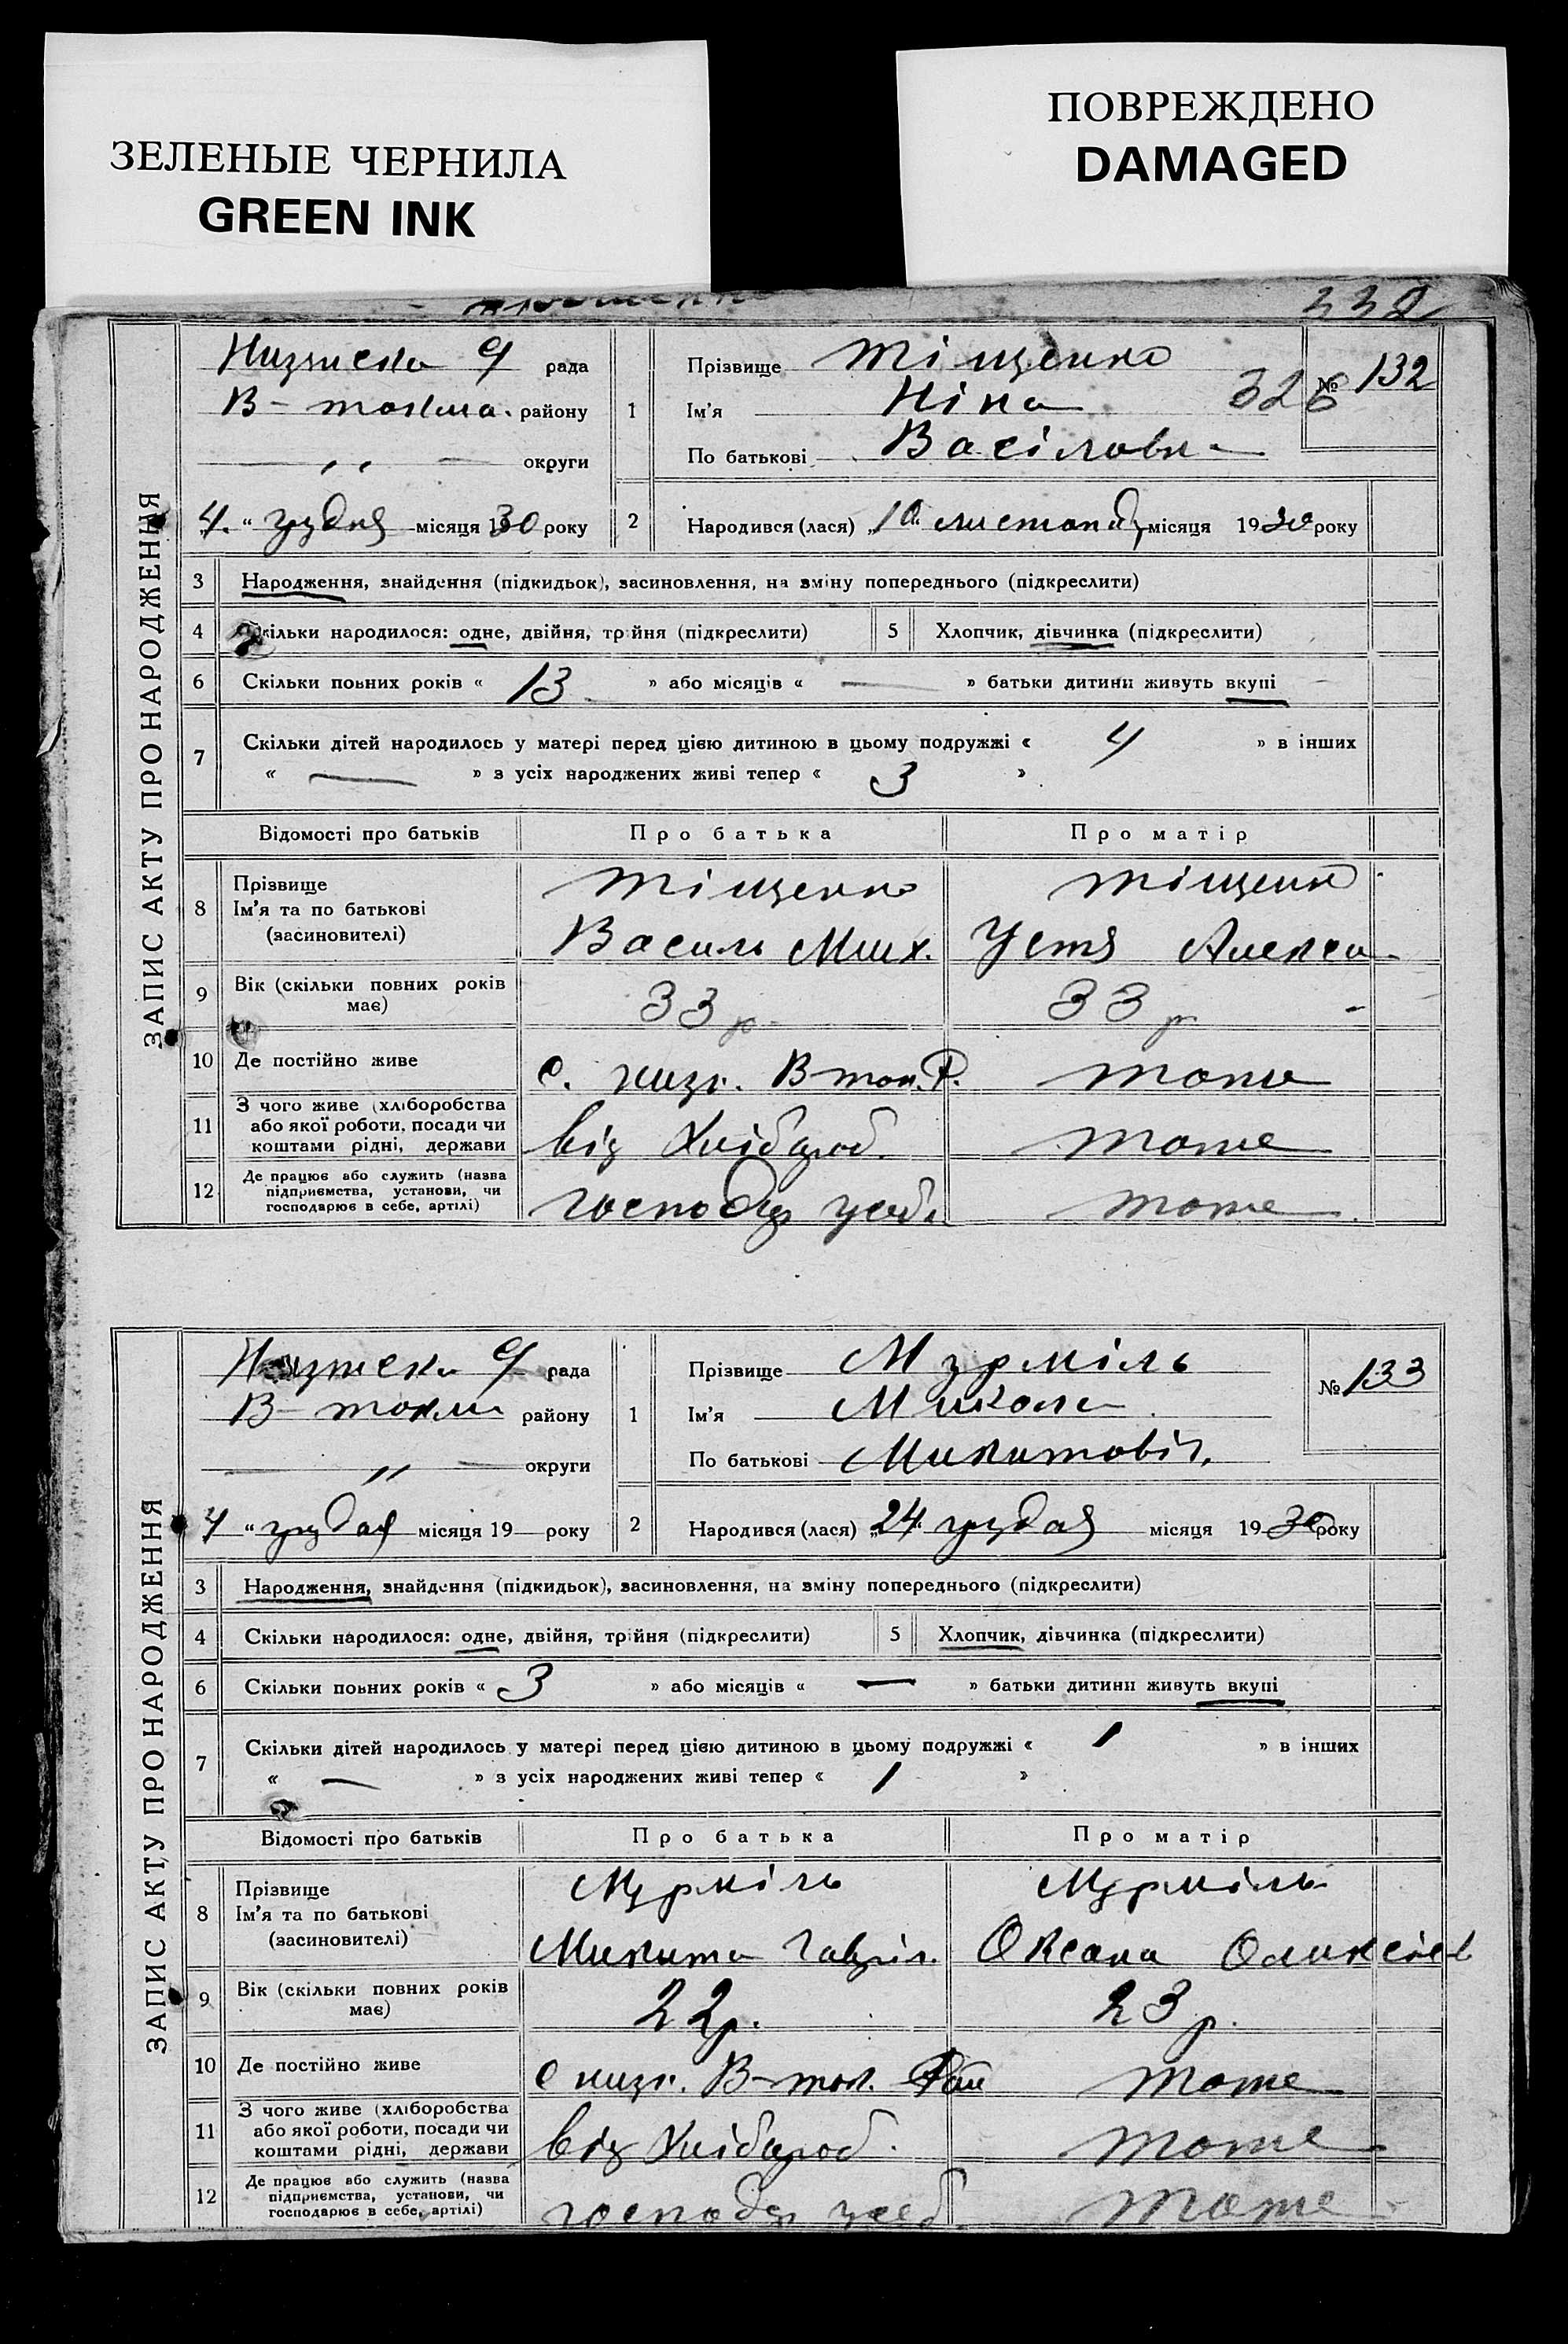 ЗЕЛЕНЫЕ ЧЕРНИЛА
GREEN INK
ПОВРЕЖДЕНО
DAMAGED
332
ЗАПИС АКТУ ПРО НАРОДЖЕННЯ
рада
В- токма. району
—„— округи
4 " грудня місяця 1930 року
1 Прізвище Тіщенко
Ім'я Ніна
326
№ 132
По батькові Васіловн
2 Народився (лася) „10" листопад місяця 1930 року
3 Народження, знайдення (підкидьок), засиновлення, на зміну попереднього (підкреслити)
4 Скільки народилося: одне, двійня, трійня (підкреслити) 5 Хлопчик, дівчинка (підкреслити)
6 Скільки повних років « 13 » або місяців « — » батьки дитини живуть вкупі
7 Скільки дітей народилось у матері перед цією дитиною в цьому подружжі « 4 » в інших
« — » з усіх народжених живі тепер « 3 »
Відомості про батьків Про батька Про матір
8 Прізвище Тіщенко Тіщенко
Ім'я та по батькові
(засиновителі) Василь Мих. Устя Алекса
9 Вік (скільки повних років має) 33 р. 33 р.
10 Де постійно живе с. низ. В-ток. Р. тоже
11 З чого живе (хліборобства
або якої роботи, посади чи
коштами рідні, держави від Хлібороб. тоже
12 Де працює або служить (назва
підприємства, установи, чи
господарює в себе, артілі) господ усеб. тоже
ЗАПИС АКТУ ПРО НАРОДЖЕННЯ
рада
В- токма району
—„— округи
4 " грудня місяця 19— року
1 Прізвище Мурміль
№ 133
Ім'я Микола
По батькові Микитовіч.
2 Народився (лася) „24" грудня місяця 1930 року
3 Народження, знайдення (підкидьок), засиновлення, на зміну попереднього (підкреслити)
4 Скільки народилося: одне, двійня, трійня (підкреслити) 5 Хлопчик, дівчинка (підкреслити)
6 Скільки повних років « 3 » або місяців « — » батьки дитини живуть вкупі
7 Скільки дітей народилось у матері перед цією дитиною в цьому подружжі « 1 » в інших
« — » з усіх народжених живі тепер « 1 »
Відомості про батьків Про батька Про матір
8 Прізвище Мурміль Мурміль
Ім'я та по батькові
(засиновителі) Микита Гавріл. Оксана Олик
9 Вік (скільки повних років має) 22р. 23 р.
10 Де постійно живе с низ. В-ток. Рай тоже
11 З чого живе (хліборобства
або якої роботи, посади чи
коштами рідні, держави від Хлібороб. тоже
12 Де працює або служить (назва
підприємства, установи, чи
господарює в себе, артілі) господ усеб. тоже